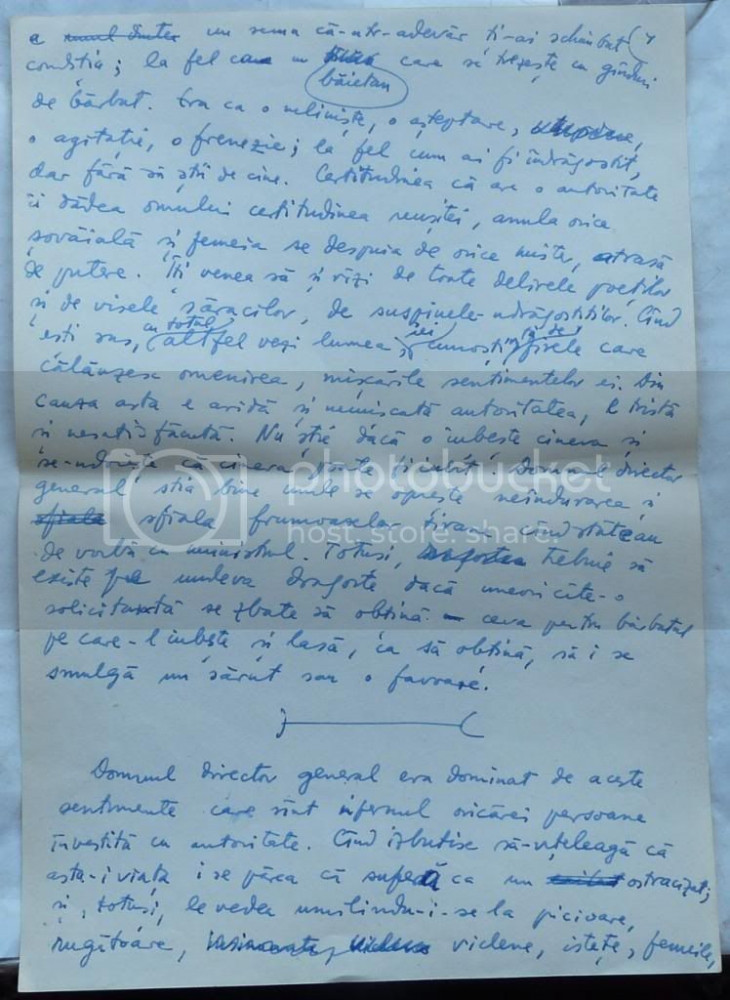 e un semn că-ntr-adevăr ți-ai schimbat
condiția; la fel ca un care se trezește cu gînduri
băietan
de bărbat. Era ca o neliniște, o așteptare,
o agitație, o frenezie; la fel cum ai fi îndrăgostit,
dar fără să știi de cine. Certitudinea că are o autoritate
îi dădea omului certitudinea reușitei, anula orice
șovăială și femeia se despuia de orice atrasă
de putere. Îți venea să și rîzi de toate delirele poeților
și de visele săracilor, de suspinele-ndrăgostiților. Cînd
cu totul
ești sus, altfel vezi lumea și cunoști firele care
călăuzesc omenirea, mișcările sentimentelor ei. Din
cauza asta e aridă și nemișcată autoritatea, e tristă
și nesatisfăcută. Nu știe dacă o iubește cineva și
se-ndoiește că ar putea fi iubită. Domnul director
general știa bine unde se oprește neîndurarea și
sfiala frumoaselor cînd stăteau
de vorbă cu ministrul. Totuși, trebuie să
existe pe undeva dragoste dacă uneori cîte-o
solicitantă se zbate să obțină ceva pentru bărbatul
pe care-l iubește și lasă, ca să obțină, să i se
smulgă un sărut sau o favoare.
Domnul director general era dominat de aceste
sentimente care sînt infernul oricărei persoane
investită cu autoritate. Cînd izbutise să-nțeleagă că
asta-i viața i se părea că suferă ca un ostracizat;
și, totuși, le vedea umilindu-i-se la picioare,
rugătoare, viclene, istețe, femeile,